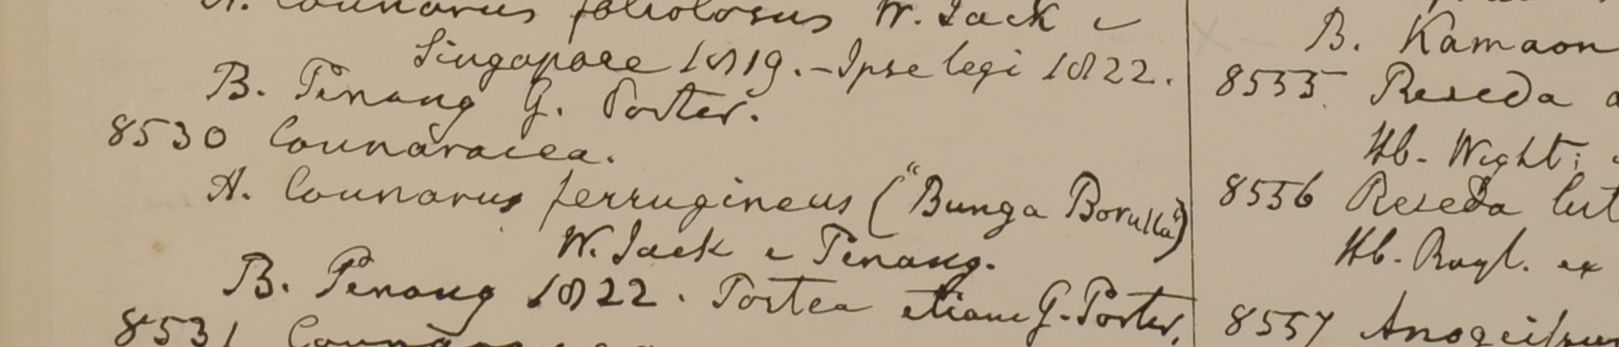 A. Connarus foliolosus W. Jack e
Singapore 1819. - Ipse legi 1822.
B. Penang G. Porter.
8530 Connaracea.
A. Connarus ferrugineus ("Bunga Borulla")
W. Jack e Penang.
B. Penang 1822. Postea etiam G. Porter.
8531
B. Kamaon
8555 Reseda
Hb. Wight;
8556 Reseda lut
Hb. Royl. ex
8557